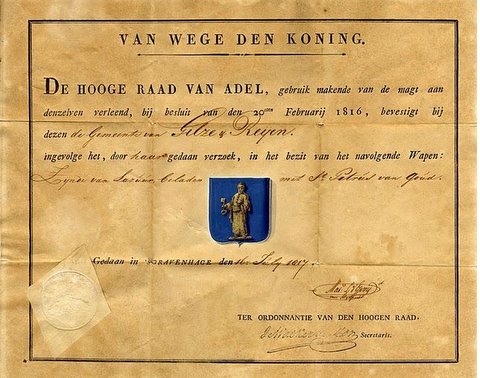 VAN WEGE DEN KONING.
DE HOOGE RAAD VAN ADEL, gebruik makende van de magt aan
denzelven verleend, bij besluit van den 20sten Februarij 1816, bevestigt bij
dezen de Gemeente van Gilze & Reijen.
ingevolge het, door haar gedaan verzoek, in het bezit van het navolgende Wapen:
Zijnde van Lazuur, beladen met St. Petrus van Goud.
Gedaan in 'sGRAVENHAGE den 16 July 1817.
TER ORDONNANTIE VAN DEN HOOGEN RAAD.
Secretaris.